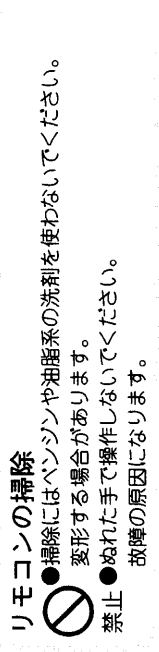 リモコンの掃除
●掃除にはベンジンや油脂系の洗剤を使わないでください。
変形する場合があります。
禁止
●ぬれた手で操作しないでください。
故障の原因になります。